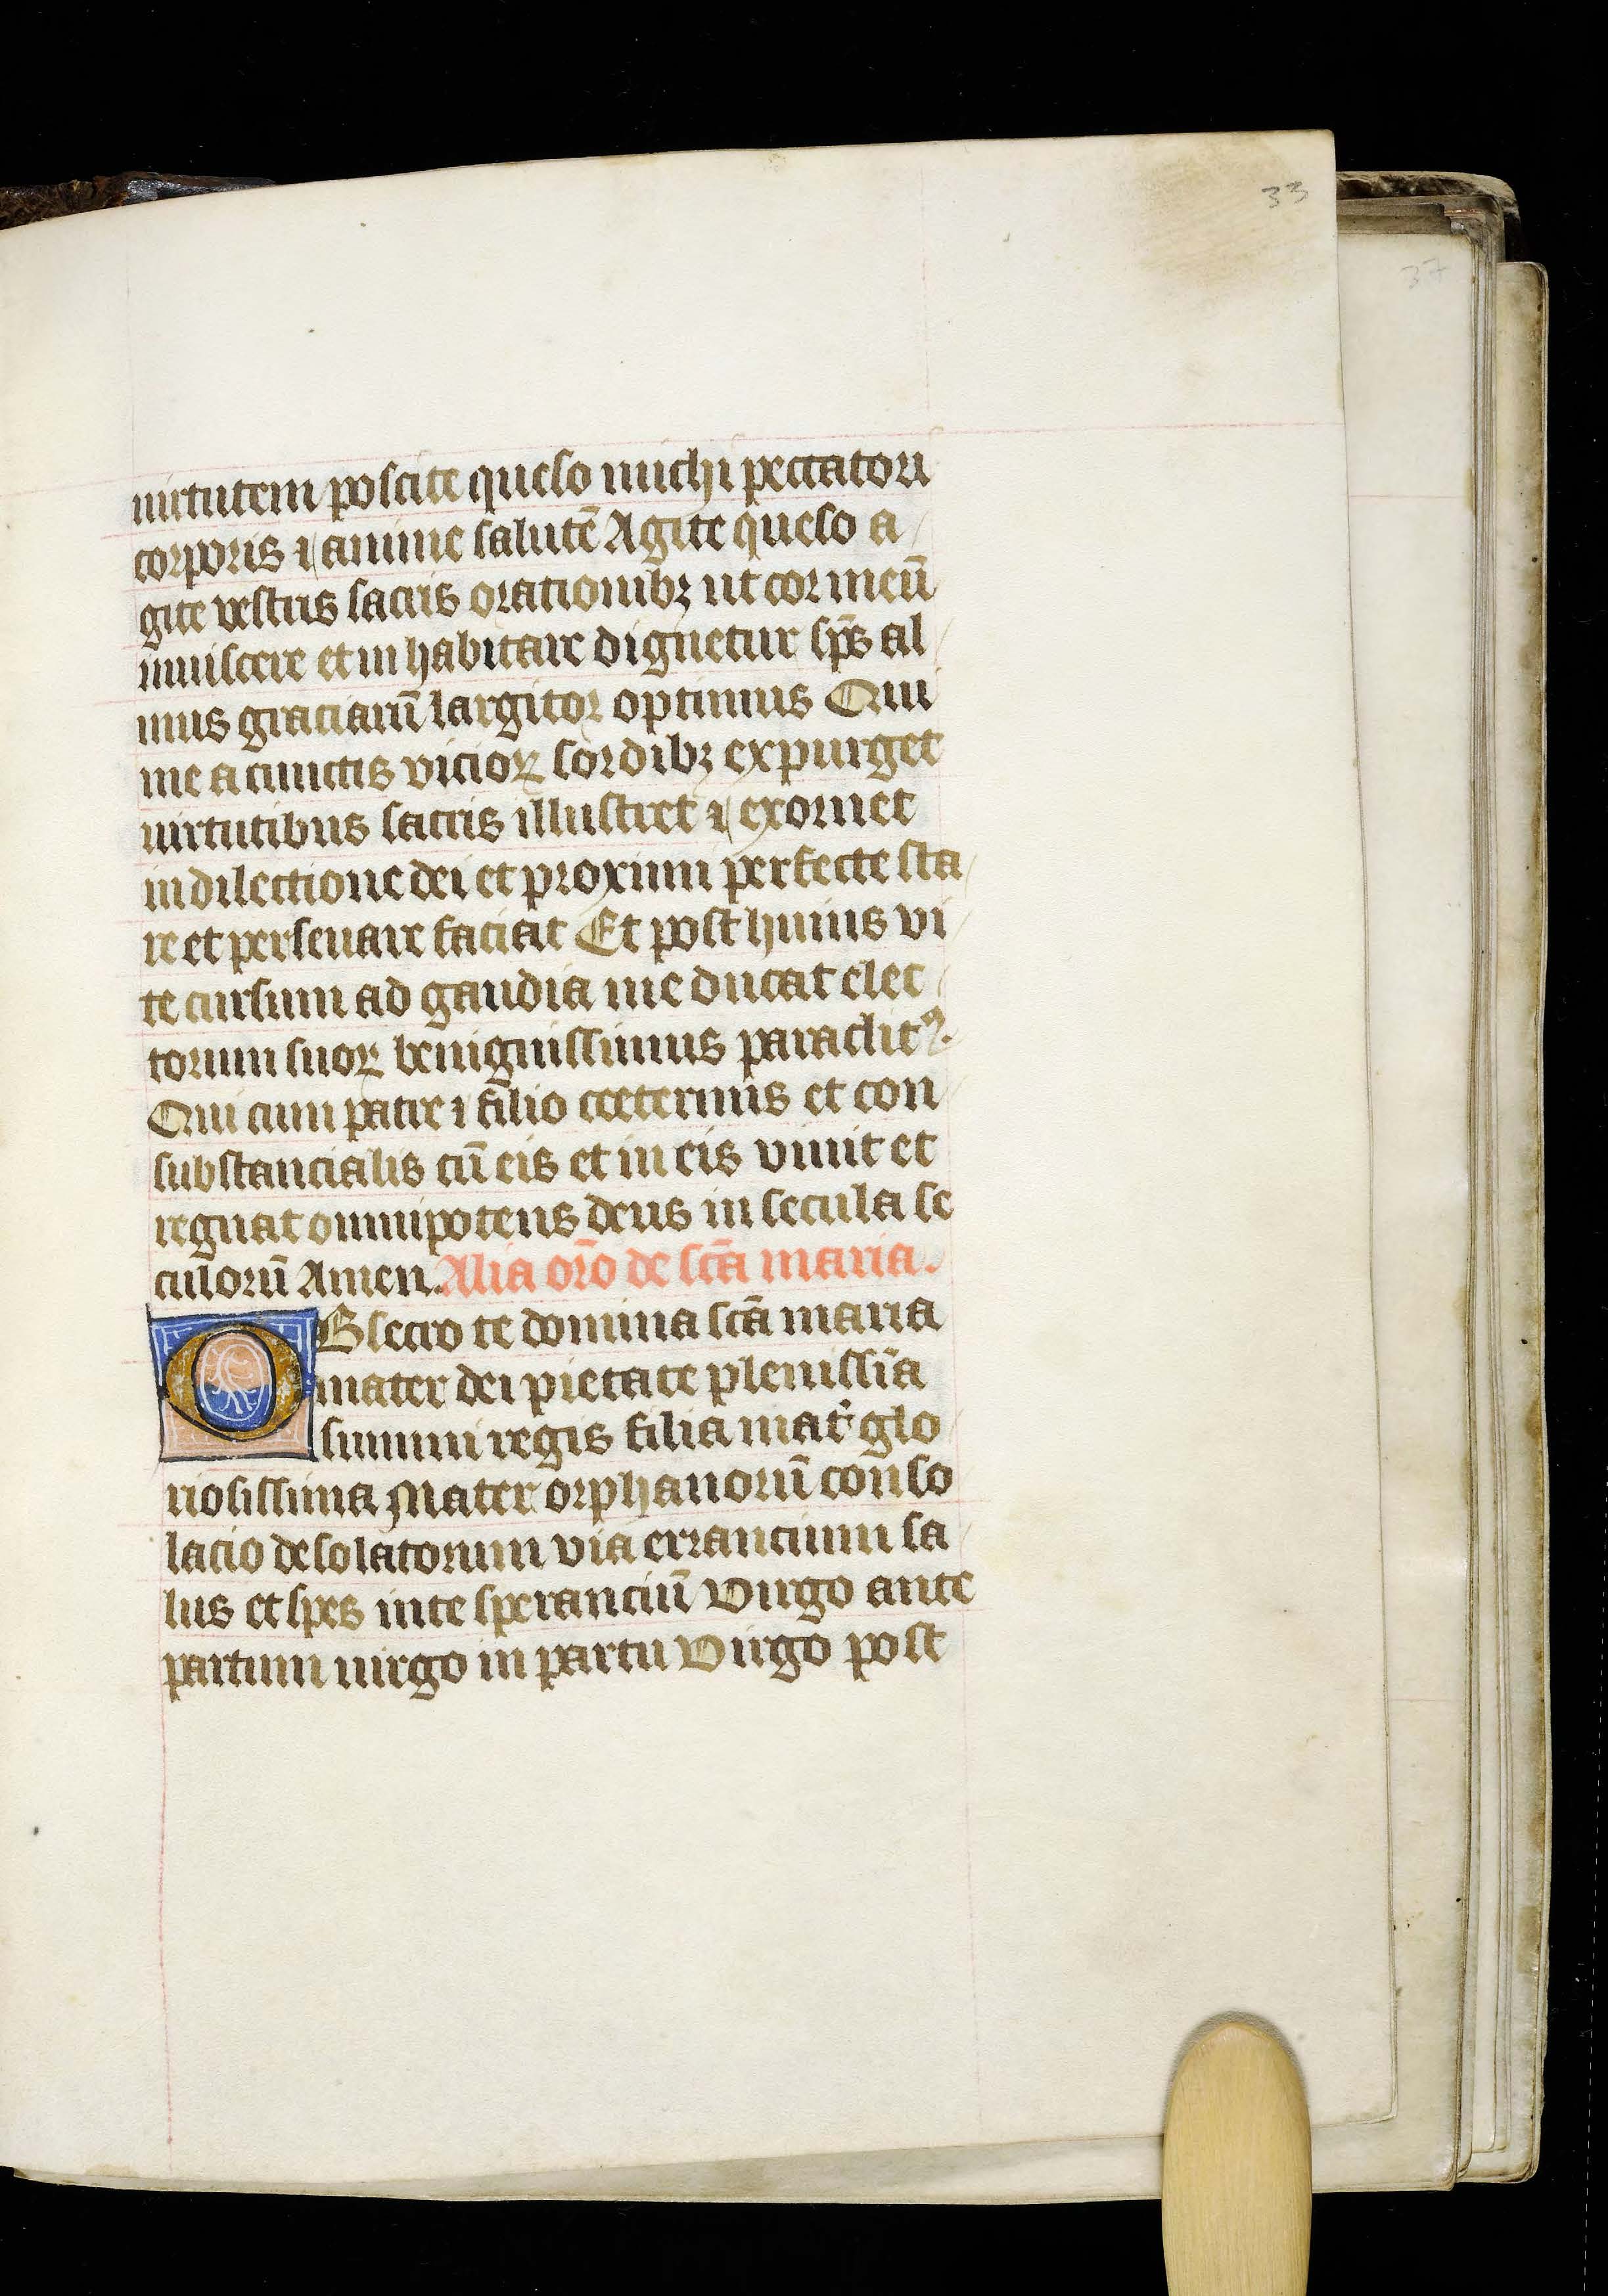 33
37
uirtutem poscite queso michi peccatori
corporis ⁊ anime salutē Agite queso a/
gite vestris sacris orationibꝫ ut cor meū
inuiscere et inhabitare dignetur sp̄s al/
mus graciarū largitor optimus Qui
me a cunctis vicioꝝ sordibꝫ expurget
uirtutibus sacris illustret ⁊ exornet
in dilectione dei et proximi perfecte sta/
re et perseuare faciat Et post huius vi/
te cursum ad gaudia me ducat elec/
torum suoꝝ benignissimus paraclitꝰ.
Qui cum patre ⁊ filio coeternus et con/
substancialis cū eis et in eis viuit et
regnat omnipotens deus in secula se
culorū Amen. Alia or̄o de sc̄a maria.
OBsecro te domina sc̄a maria
mater dei pietate plenissīa
summi regis filia mat̄ glo
riosissima Mater orphanorū conso
lacio desolatorum via errancium sa/
lus et spes in te speranciū Virgo ante
partum uirgo in partu Virgo post